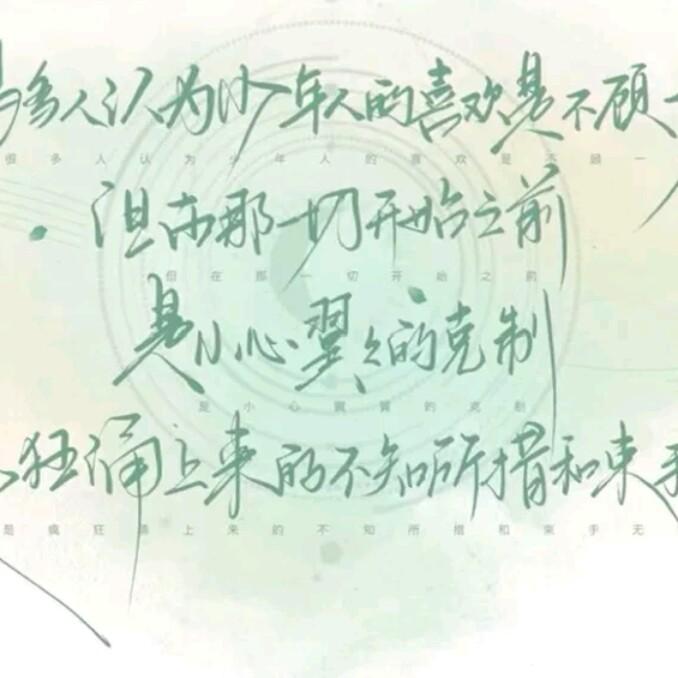 多人认为少年人的喜欢是不顾一
很多人认为少年人的喜欢是不顾一
但在那一切开始之前
但在那一切开始之前
是小心翼翼的克制
是小心翼翼的克制
狂涌上来的不知所措和束手
是疯狂涌上来的不知所措和束手无